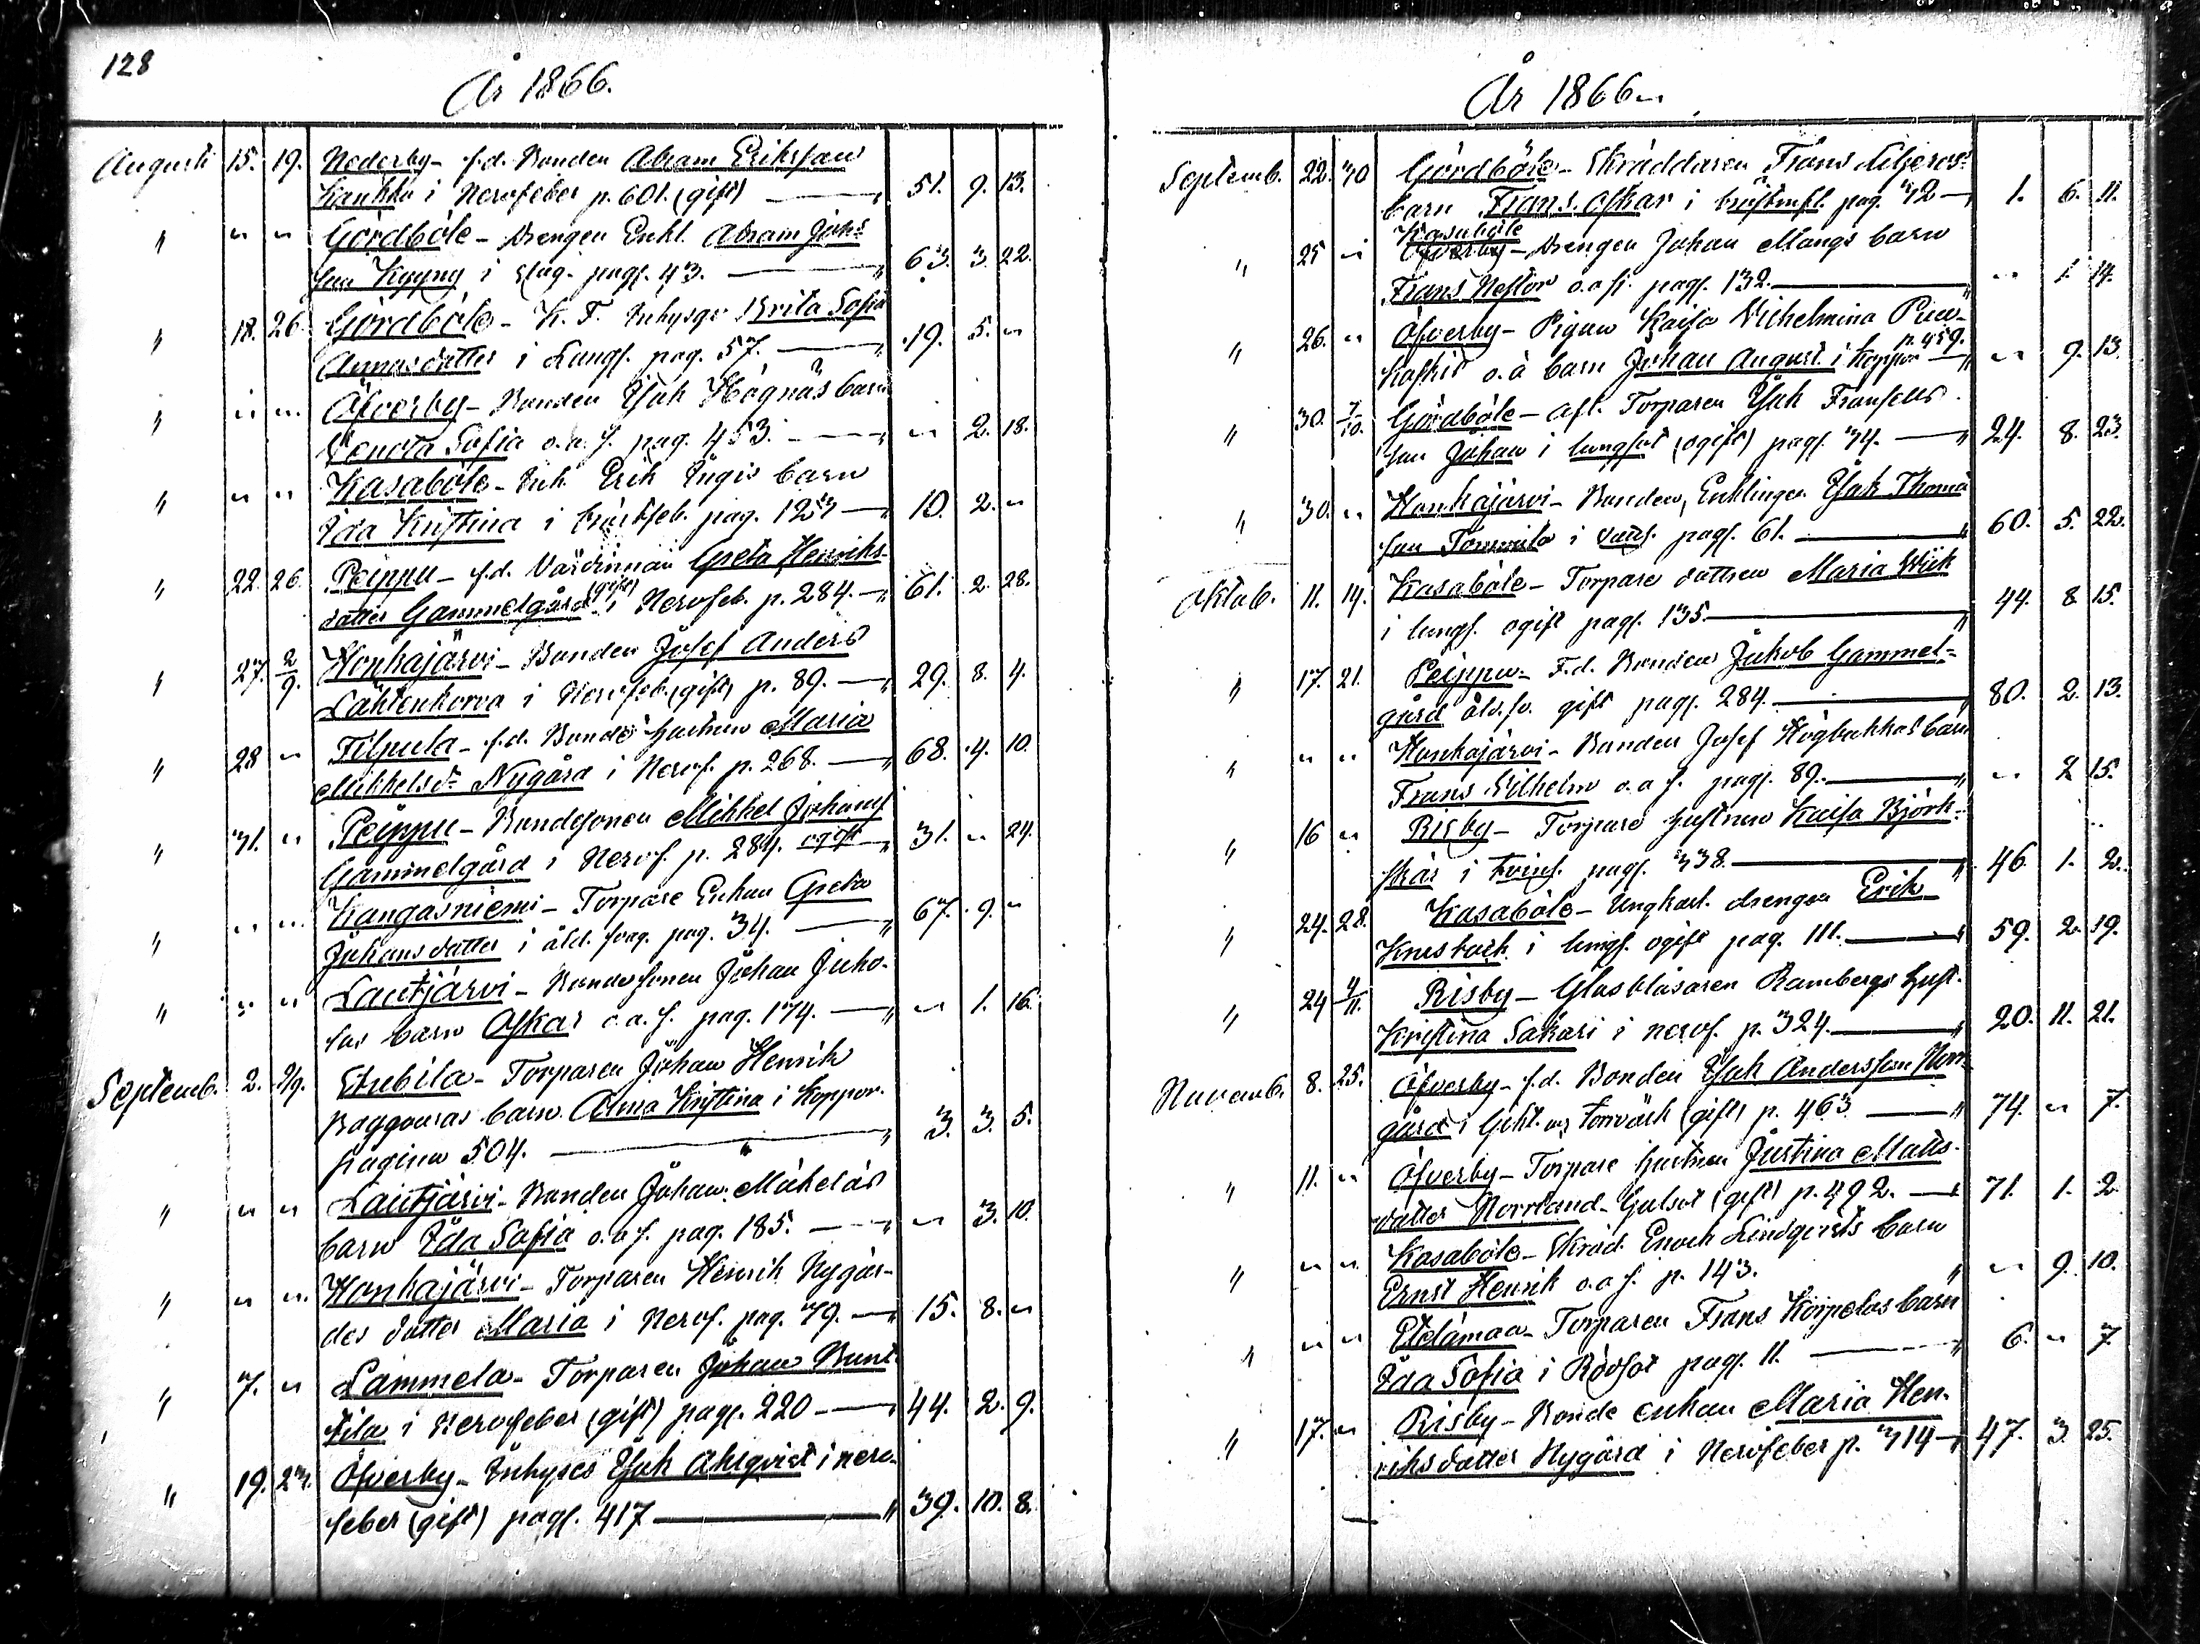 128
År 1866.
Augusti 15. 19. Nederby - f.d. Bonden Abram Eriksson
Kankku i Nervfeber p. 601. (gift) 51. 9. 13.
" " " Gördböle - Drengen Enkl. Abram Johs
son Kyyny i Slag. pag. 43. " 63. 3. 22.
" 18. 26. Gördböle - K. F. Inhyses Brita Sofia
Annasdatter i Lungs. pag. 57. " 19. 5. "
" " " Öfverby - Bonden Isak Högnäs barn
Sofia o.a.s. pag. 453. " " 2. 18.
" " " Kasaböle - Inh. Erik Ingis barn
Ida Kristina i bröstfeb. pag. 123 10. 2. "
" 22. 26. Peippu - f.d. Värdinnan Greta Henriks-
datter Gammelgård (gift) i Nervfeb. p. 284. 61. 2. 28.
" 27. 2/9. Honkajärvi - Bonden Josef Anders
Lähtenkorva i Nervfeb. (gift) p. 89. " 29. 8. 4.
" 28 " Filpula - f.d. Bonde hustrun Maria
Mikkelsdr Nygård i Nervf. p. 268. " 68. 4. 10.
" 31. " Peippu - Bondesonen Mikkel Johans
Gammelgård i Nervf. p. 284. ogift 31. " 24.
" " " Kangasniemi - Torpare Enkan Greta
Johansdatter i åld. svag. pag. 34. " 67. 9. "
" " " Lautjärvi - Bondesonen Johan Juho-
las barn Oskar o.a.s. pag. 174. " " 1. 16.
Septemb. 2. 9/9. Stubila - Torparen Johan Henrik
Baggonras barn Alma Kristina i Koppor.
pagina 504. " 3. 3. 5.
" " " Lautjärvi - Bonden Johan Mäkeläs
barn Ida Sofia o.a.s. pag. 185. " " 3. 10.
" " " Honkajärvi - Torparen Henrik Nygår-
des dotter Maria i Nervf. pag. 79. 15. 8. "
" 7. " Lammela - Torparen Johan Bunt-
tila i Nervfeber (gift) pag. 220 44. 2. 9.
" 19. 23. Öfverby - Inhyses Isak Ahlqvist i nerv-
feber (gift) pag. 417 " 39. 10. 8.
År 1866
Septemb. 22. 30 Gördböle - Skräddaren Frans Liljeros
barn Frans Oskar i bröstinfl. pag. 42 1. 6. 11.
Kasaböle
" 25 " Öfverby - Drengen Johan Mangs barn
Frans Nestor o.a.s. pag. 132. " 1. 14.
" 26. " Öfverby - Pigan Kaisa Vilhelmina
o.ä barn Johan August i koppor p. 459. " 9. 13.
" 30. 7/10. Gördböle - afl. Torparen Isak Fransens
son Johan i lungsot (ogift) pag. 34. " 24. 8. 23.
" 30. " Honkajärvi - Bonden, Enklingen Isak Thomä
son Tommila i pag. 61. " 60. 5. 22.
Oktob. 11. 14. Kasaböle - Torpare dottren Maria Wiik
i lungs. ogift pag. 135. " 44. 8 15.
" 17. 21. Peippu - F.d. Bonden Jakob Gammel-
gård åld.sv. gift pag. 284. 80. 2. 13.
" " " Honkajärvi - Bonden Josef Högbackkas barn
Frans Vilhelm o.a.s. pag. 89. " " 2 15.
" 16 " Risby - Torpare hustrun Kaisa Björk-
skär i tvins. pag. 338. " 46. 1. 2.
" 24. 28. Kasaböle - Ungkarl. drengen Erik
i lungs. ogift pag. 111. " 59. 2. 19.
" 24 4/11. Risby - Glasblåsaren Rambergs hust.
Kristina Sakari i nervf. p. 324. " 20. 11. 21.
Novemb. 8. 25. Öfverby - f.d. Bonden Isak Andersson Norr-
gård i Gikt. torrvärk (gift) p. 463 " 74. " 7.
" 11. " Öfverby - Torpare hustrun Justina Matts-
datter Norrland. Gulsot (gift) p. 492. 71. 1. 2
" " " Kasaböle - Skräd. Enoch Lindqvists barn
Ernst Henrik o.a.s. p. 143. " " 9. 10.
" " " Etelämaa - Torparen Frans Korpelas barn
Ida Sofia i Rödsot pag. 11. " 6. " 7
" 17. " Risby - Bonde enkan Maria Hen-
riksdatter Nygård i Nervfeber p. 314 47. 3. 25.